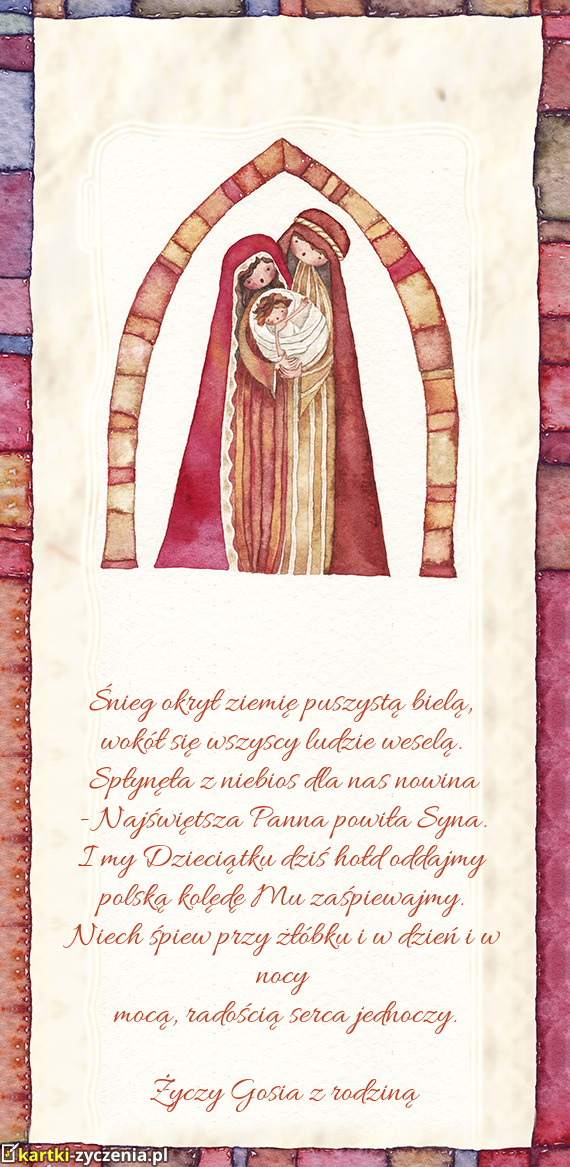 Śnieg okrył ziemię puszystą bielą,
wokół się wszyscy ludzie weselą.
Spłynęła z niebios dla nas nowina
- Najświętsza Panna powiła Syna.
I my Dzieciątku dziś hołd oddajmy
polską kolędę Mu zaśpiewajmy.
Niech śpiew przy żłóbku i w dzień i w
nocy
mocą, radością serca jednoczy.
Życzy Gosia z rodziną
kartki-zyczenia.pl